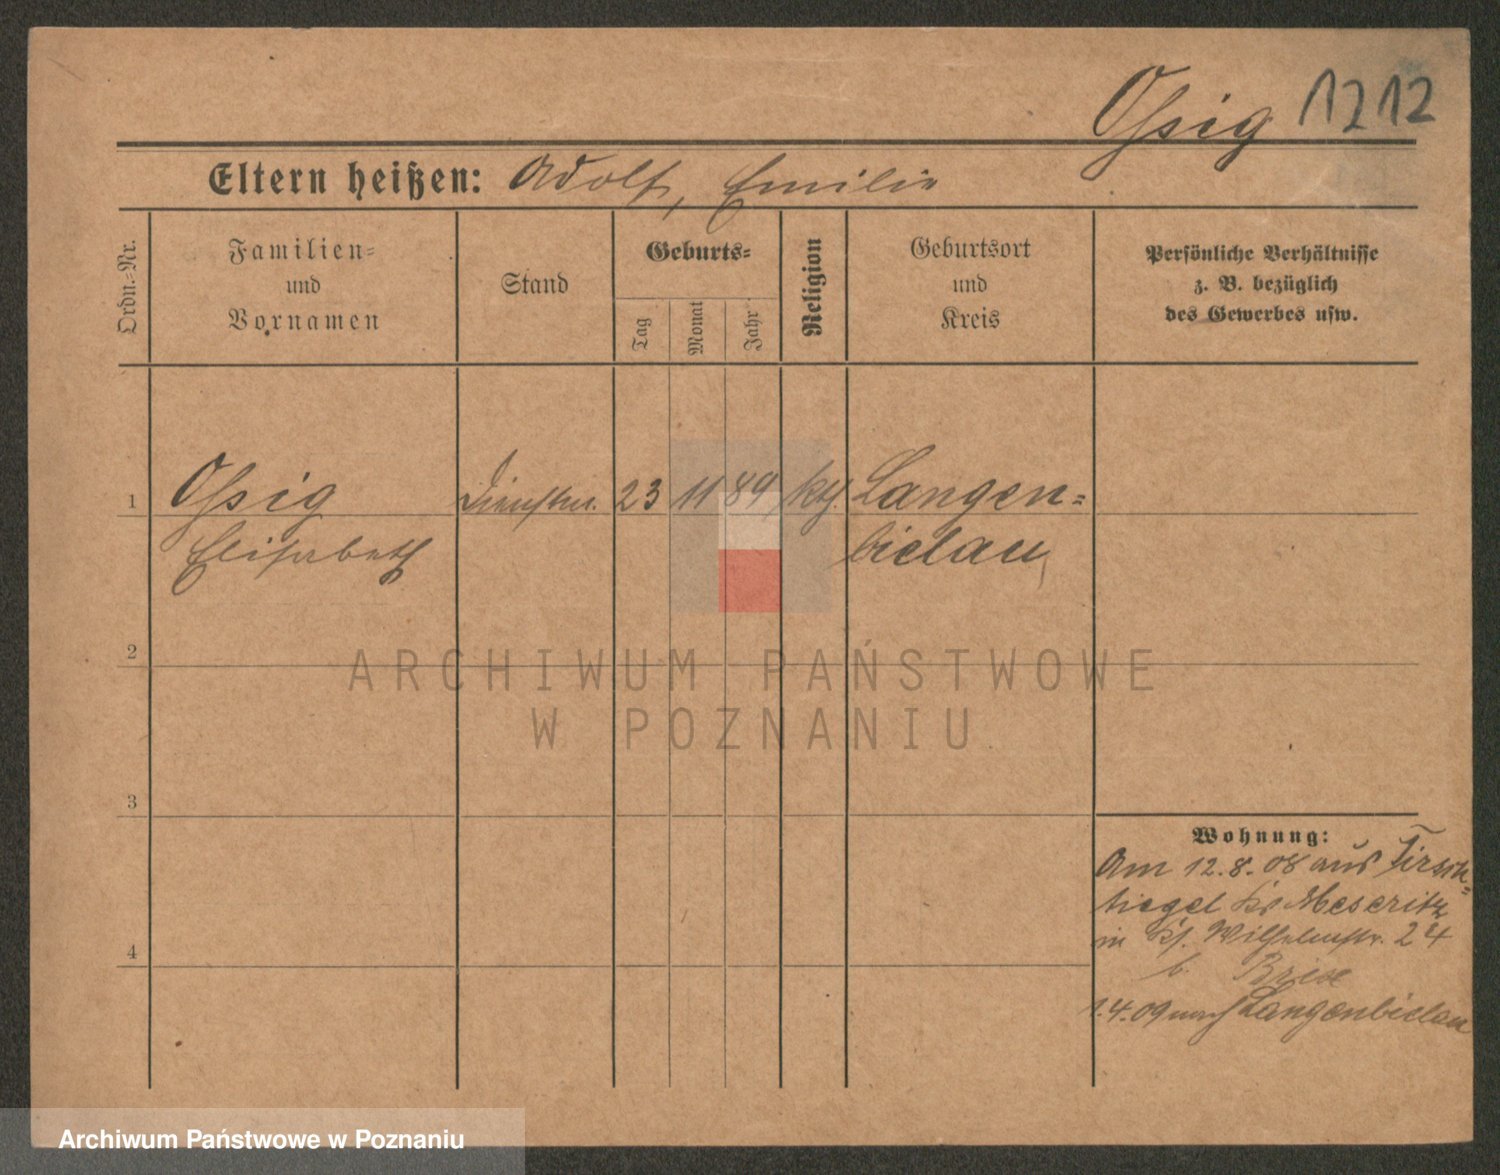 Ossig 1212
Eltern heißen: Adolf, Emilie
Ordn.-Nr.
Familien-
und
Vornamen
Stand
Geburts-
Tag
Monat
Jahr
Religion
Geburtsort
und
Kreis
Persönliche Verhältnisse
z. B. bezüglich
des Gewerbes usw.
1 Ossig Dienstm. 23 11 89 kth. Langen-
Elisabeth bielau
2
ARCHIWUM PAŃSTWOWE
W POZNANIU
3
Wohnung:
Am 12.8.08 aus Tirsch-
tiegel Kr Meseritz
in Wilhelmstr. 24
4
b.
1.4.09 nach Langenbielau
Archiwum Państwowe w Poznaniu